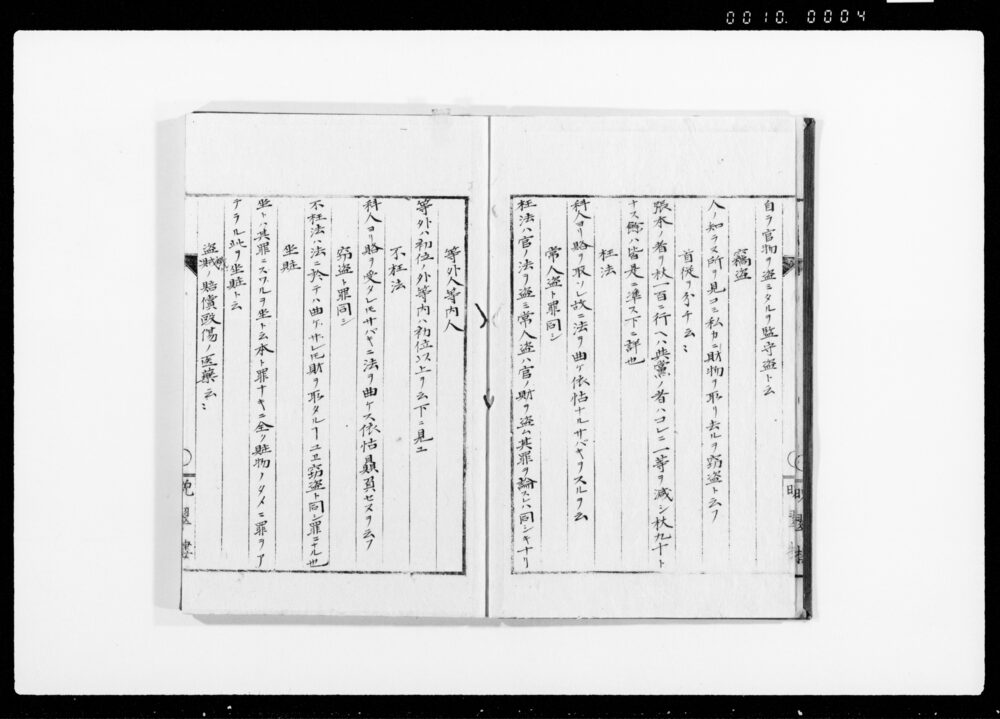 0010. 0004
自ラ官物ヲ盗ミタルヲ監守盗ト云
竊盗
人ノ知ラヌ所ヲ見コミ私カニ財物ヲ取リ去ルヲ窃盗ト云フ
首従ヲ分チ云〻
張本ノ者ヲ杖一百ニ行ヘハ其黨ノ者ハコレニ一等ヲ減シ杖九十ト
ナス餘ハ皆是ニ準ス下ニ詳也
枉法
科人ヨリ賂ヲ取ソレ故ニ法ヲ曲ケ依怙ナルサバキヲスルヲ云
常人盗ト罪同シ
枉法ハ官ノ法ヲ盗ミ常人盗ハ官ノ財ヲ盗ム其罪ヲ論スレハ同シキナリ
等外人等内人
等外ハ初位ノ外等内ハ初位以上ヲ云下ニ見ユ
不枉法
科人ヨリ賂ヲ受タレ𪜈サバキニ法ヲ曲ケス依怙贔負セヌヲ云フ
窃盗ト罪同シ
不枉法ハ法ニ於テハ曲ケサレ𪜈財ヲ取タルヿユヱ窃盗ト同シ罪ニナル也
坐贓
坐トハ其罪ニスワルヲ坐ト云本ト罪ナキニ全ク贓物ノタメニ罪ヲア
テラル此ヲ坐贓ト云
盗賊ノ賠償毆傷ノ医藥云〻
晩翠楼